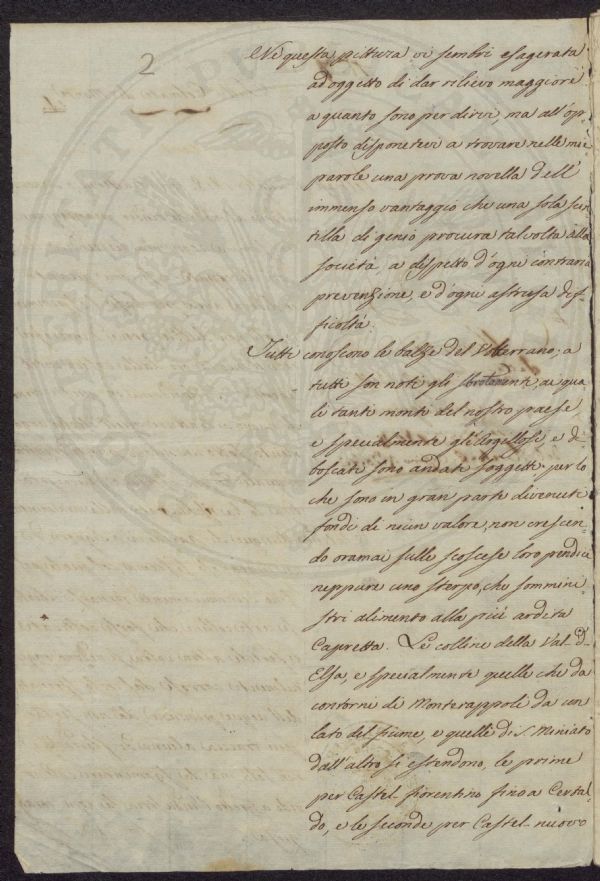 2
Ne questa pittura vi sembri esagerata
ad oggetto di dar rilievo maggiore
a quanto sono per dirvi, ma all'op-
posto disponetevi a trovare nelle mie
parole una prova novella dell'
immenso vantaggio che una sola scin-
tilla di genio procura talvolta alla
società, a dispetto d'ogni contraria
prevenzione, e d'ogni astrusa dif-
ficoltà.
Tutti conoscono le balze del Volterrano; a
tutti son noti gli, ai qua
li tanti monti del nostro paese,
e specialmente gli argillosi, e di-
boscati sono andati soggetti per lo
che sono in gran parte divenuti
fondi di niun valore, non crescen-
do oramai sulle scoscese loro pendici
neppure uno sterpo, che sommini
stri alimento alla più ardita
Capretta. Le colline della Val-d'-
Elsa, e specialmente quelle che da
contorni di Monterappoli da un
lato del fiume, e quelle di S. Miniato
dall'altro si estendono, le prime
per Castel-fiorentino fino a Certal-
do, e le seconde per Castel-nuovo